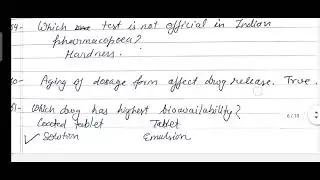 59- Which test is not official in Indian
pharmacopoea?
Hardness.
60- Aging of dosage form affect drug release. True.
61- Which drug has highest bioavailability?
Coated tablet Tablet
✓ Solution Emulsion
6/10